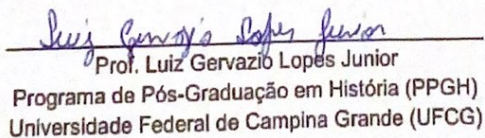 Luiz Gervazio Lopes Junior
Prof. Luiz Gervazio Lopes Junior
Programa de Pós-Graduação em História (PPGH)
Universidade Federal de Campina Grande (UFCG)